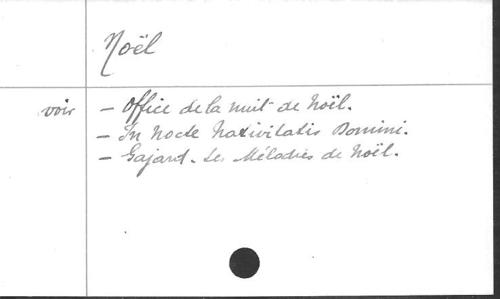 Noël
voir – Office de la nuit de Noël.
– In Nocte Nativitatis Domini.
– Gajard. Les Mélodies de Noël.